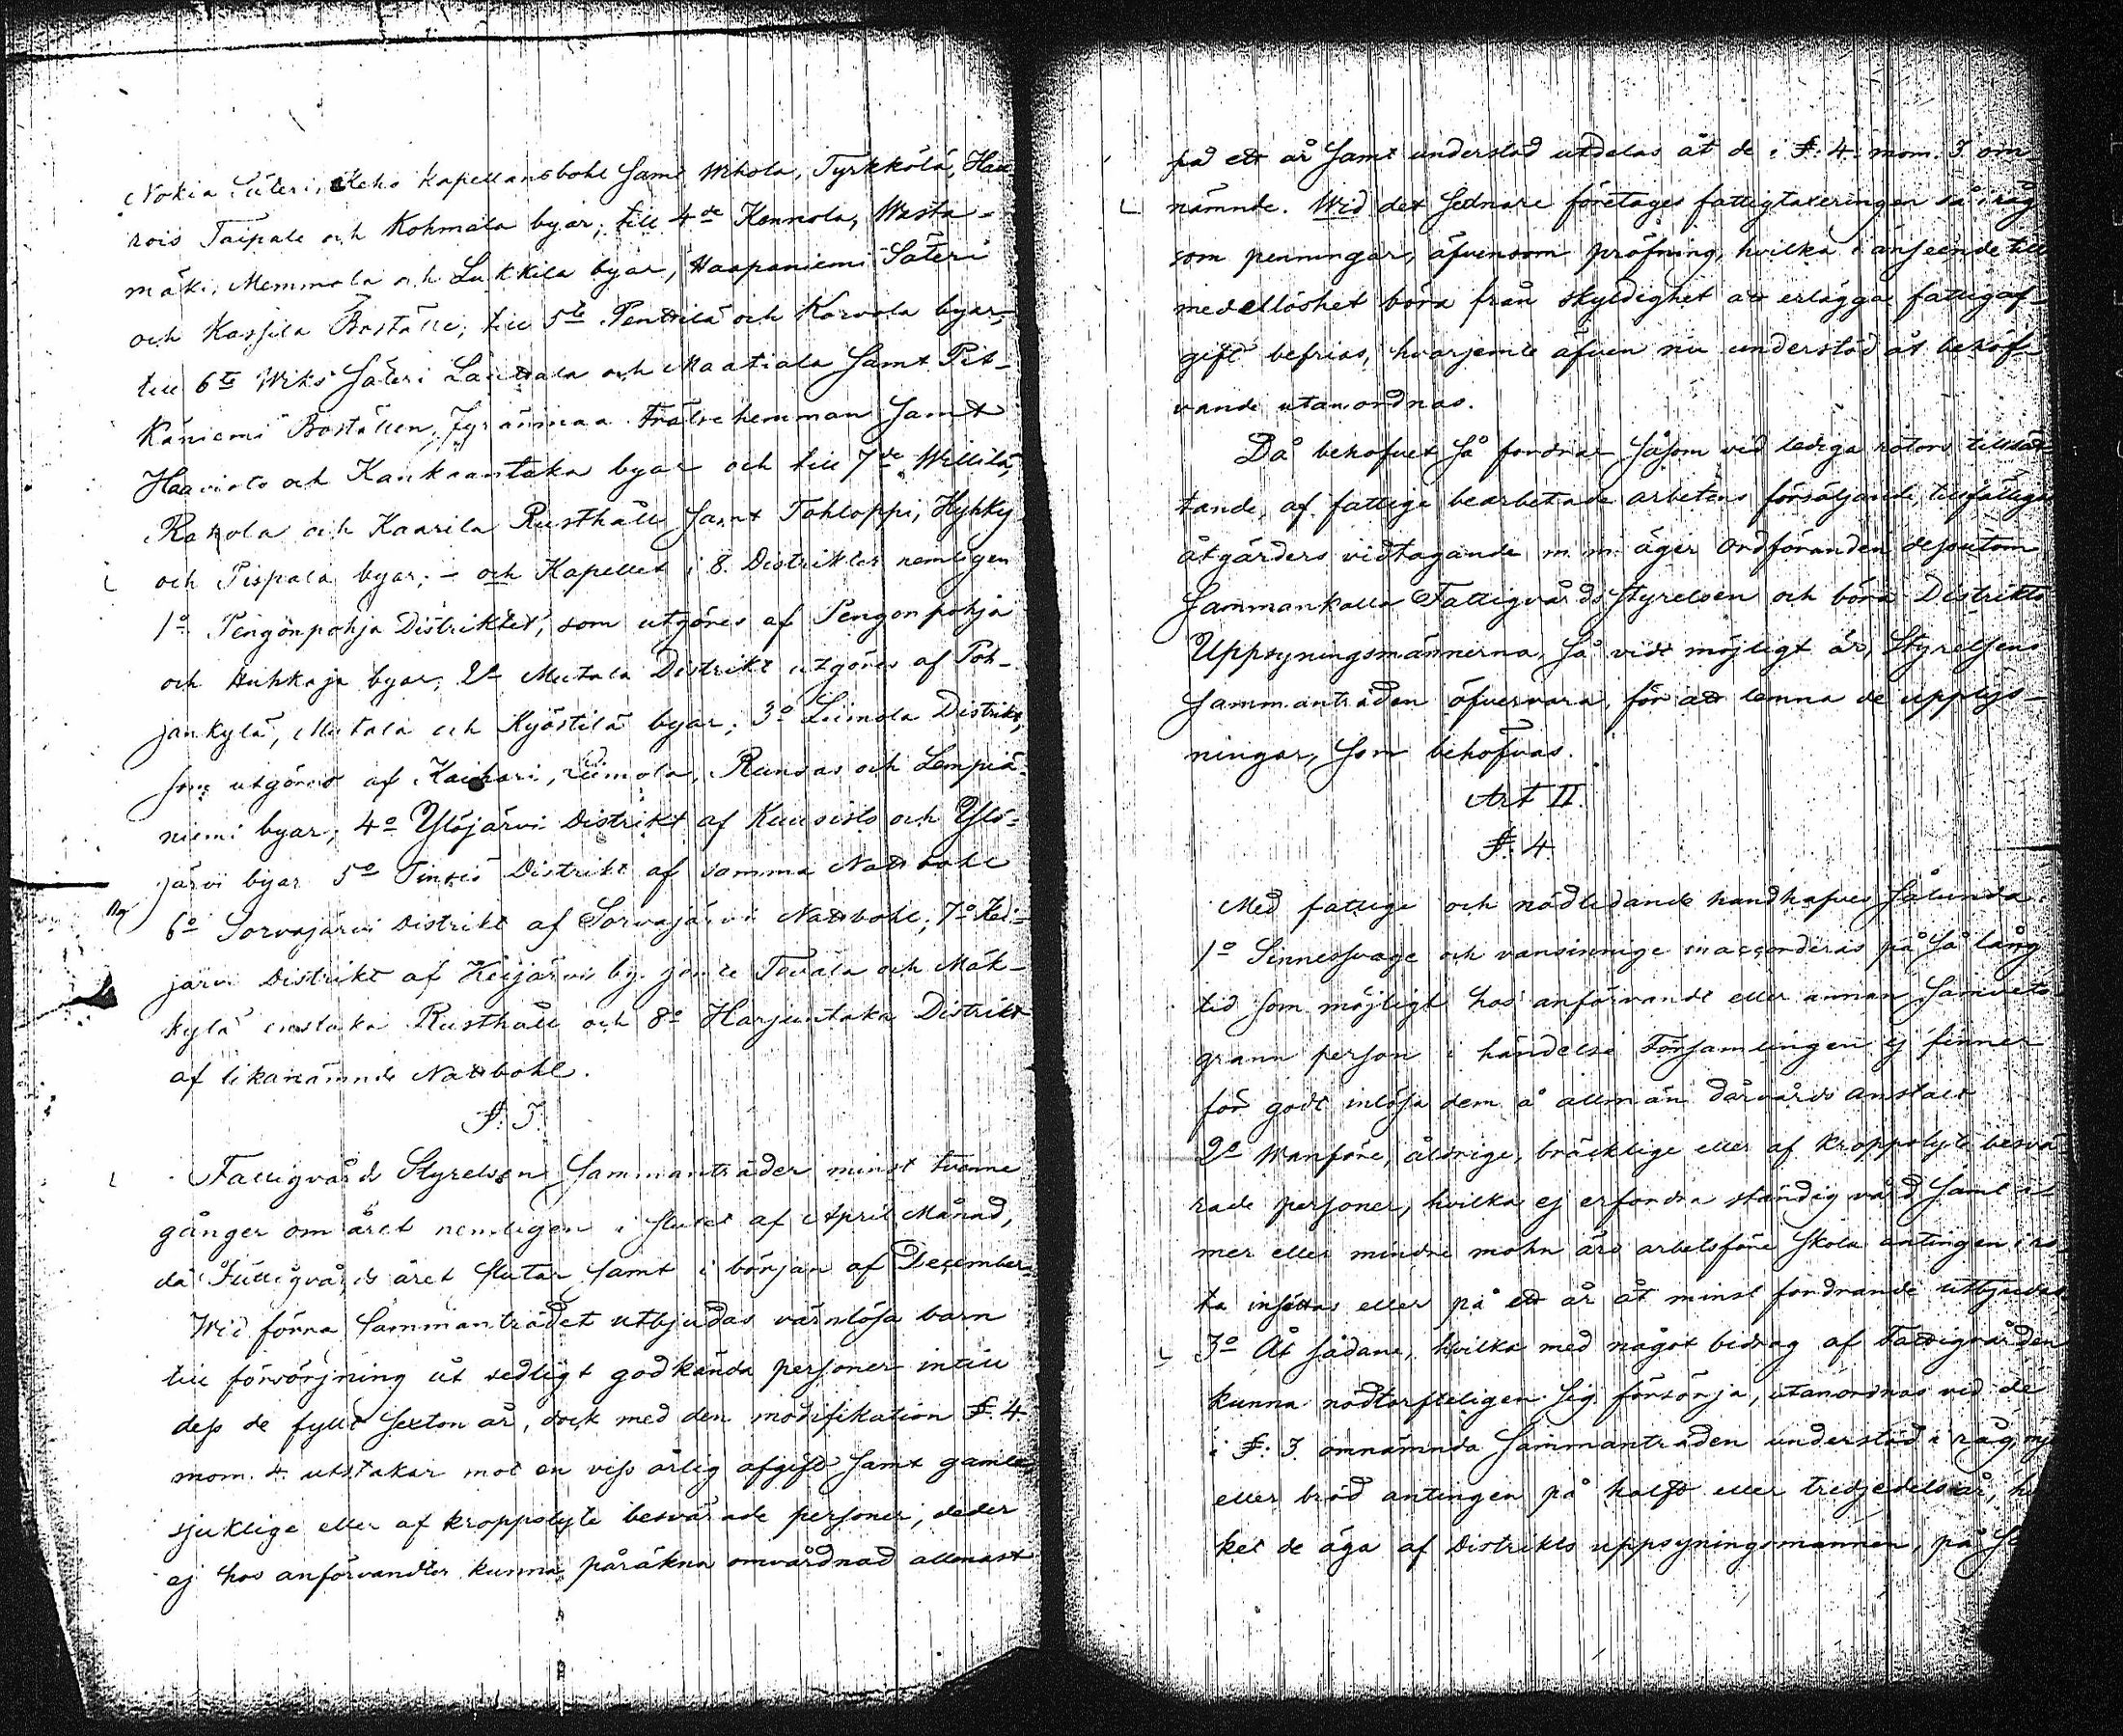 Nokia Säteri, Keho Kapellansbohl samt Wihola, Tyrkkölä, Haa
rois Taipale och Kohmala byar; till 4de Kennola, Wasta-
mäki, Memmola och Lukkila byar, Haapaniemi Säteri
och Kassila Boställe; till 5te Penttilä och Korvola byar;
till 6te Wiks Säteri Lauttala och Maatiala samt Pit-
käniemi Boställen, Jyränmaa Frälsehemman samt
Haavisto och Kankaantaka byar och till 7de Willilä,
Rahola och Kaarila Rusthåll samt Tohloppi, Hyhky
och Pispala byar; - och Kapellet i 8. Distrikter nemligen
1o Pengonpohja Distriktet, som utgöres af Pengonpohja
och Huhkaja byar; 2o Mutala Distrikt utgöres af Poh-
jankylä, Mutala och Kyöstilä byar; 3o Liimola Distrikt,
som utgöres af Kaihari, Liimola, Runsas och Lempiä-
niemi byar; 4o Ylöjärvi Distrikt af Kuusisto och Ylö-
järvi byar 5o Tinkis Distrikt af samma Nattbohl
6o Sorvajärvi Distrikt af Sorvajärvi Nattbohl; 7o Kei-
järvi Distrikt af Keijärvis by jemte Tavala och Mäk-
kylä enstaka Rusthåll och 8o Harjuntaka Distrikt
af likanämnde Nattbohl.
§. 3.
Fattigvårds Styrelsen sammanträder minst tvenne
gånger om året nemligen i slutet af April Månad,
då Fattigvårds året slutar samt i början af December.
Wid förra sammanträdet utbjudas värnlösa barn
till försörjning åt sedligt godkända personer intill
dess de fyllt sexton år, dock med den modifikation §. 4
mom. 4. utstakar mot en viss årlig afgift samt gamla,
sjuklige eller af kroppslyte besvärade personer, de der
ej hos anförvandter kunna påräkna omvårdnad allenast
på ett år samt understöd utdelas åt de i §. 4. mom. 3. om-
nämnde. Wid det sednare företages fattigtaxeringen så i råg
som penningar, äfvensom pröfning, hvilka i anseende till
medellöshet böra från skyldighet att erlägga fattigaf-
gift befrias, hvarjemte äfven nu understöd åt behöf-
vande utanordnas.
Då behofvet så fordrar såsom vid lediga rotors tillsät-
tande, af fattige bearbetade arbetens försäljande, tillfälliga
åtgärders vidtagande m. m. äger Ordföranden dessutom
sammankalla Fattigvårds Styrelsen och böra Distrikts
Uppsyningsmännerna, så vidt möjligt är, Styrelsens
sammanträden öfvervara, för att lemna de upplys-
ningar, som behöfvas.
Art II.
§. 4.
Med fattige och nödlidande handhafves sålunda
1o Sinnessvage och vansinnige inaccorderas på så lång
tid som möjligt hos anförvandt eller annan samvets-
grann person i händelse Församlingen ej finner
för godt inlösa dem å allmän dårvårds anstalt
2o Wanföre, åldrige, bräcklige eller af kroppslyte besvä-
rade personer, hvilka ej erfordra ständig vård samt i
mer eller mindre mohn äro arbetsföre skola antingen i ro-
ta insättas eller på ett år åt minst fordrande utbjudas,
3o Åt sådane, hvilka med något bidrag af Fattigvården
kunna nödtorfteligen sig försörja, utanordnas vid de
i §. 3. omnämnda sammanträden understöd i råg, mj
eller bröd antingen på halft eller tredjedels år, h
ket de äga af Distrikts uppsyningsmannen, på